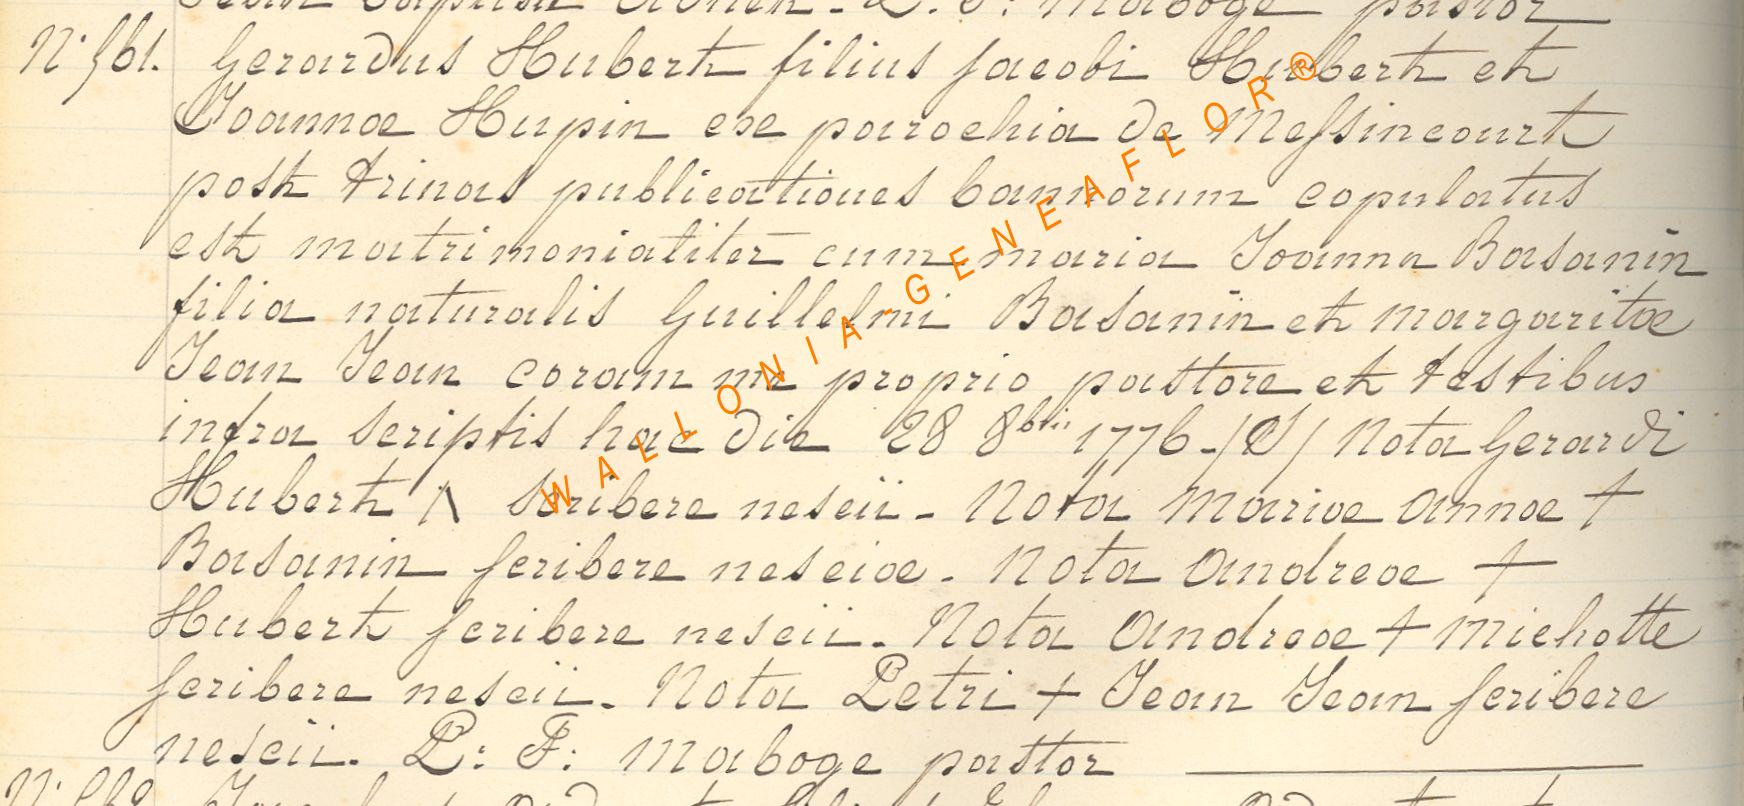 Jean Baptista L. F: Maboge pastor
N° 561. Gerardus Hubert filius Jacobi Hubert et
Joannae Hupin exe parochia de Messincourt
post trinas publicationes bannorum copulatus
est matrimonialiter cum maria Joanna Basanin
filia naturalis Guillelmi Basanin et margaritae
Jean Jean coram me proprio pastore et testibus
infra scriptis hac die 28 8bris 1776 - /S/ Nota Gerardi
Hubert /\ scribere nescii - Nota Mariae annae +
Basanin scribere nesciae - Nota Andreae +
Hubert scribere nescii - Nota Andreae + Michotte
scribere nescii - Nota Petri + Jean Jean scribere
nescii. L: F: Maboge pastor
WALLONIA-GENEAFLOR®